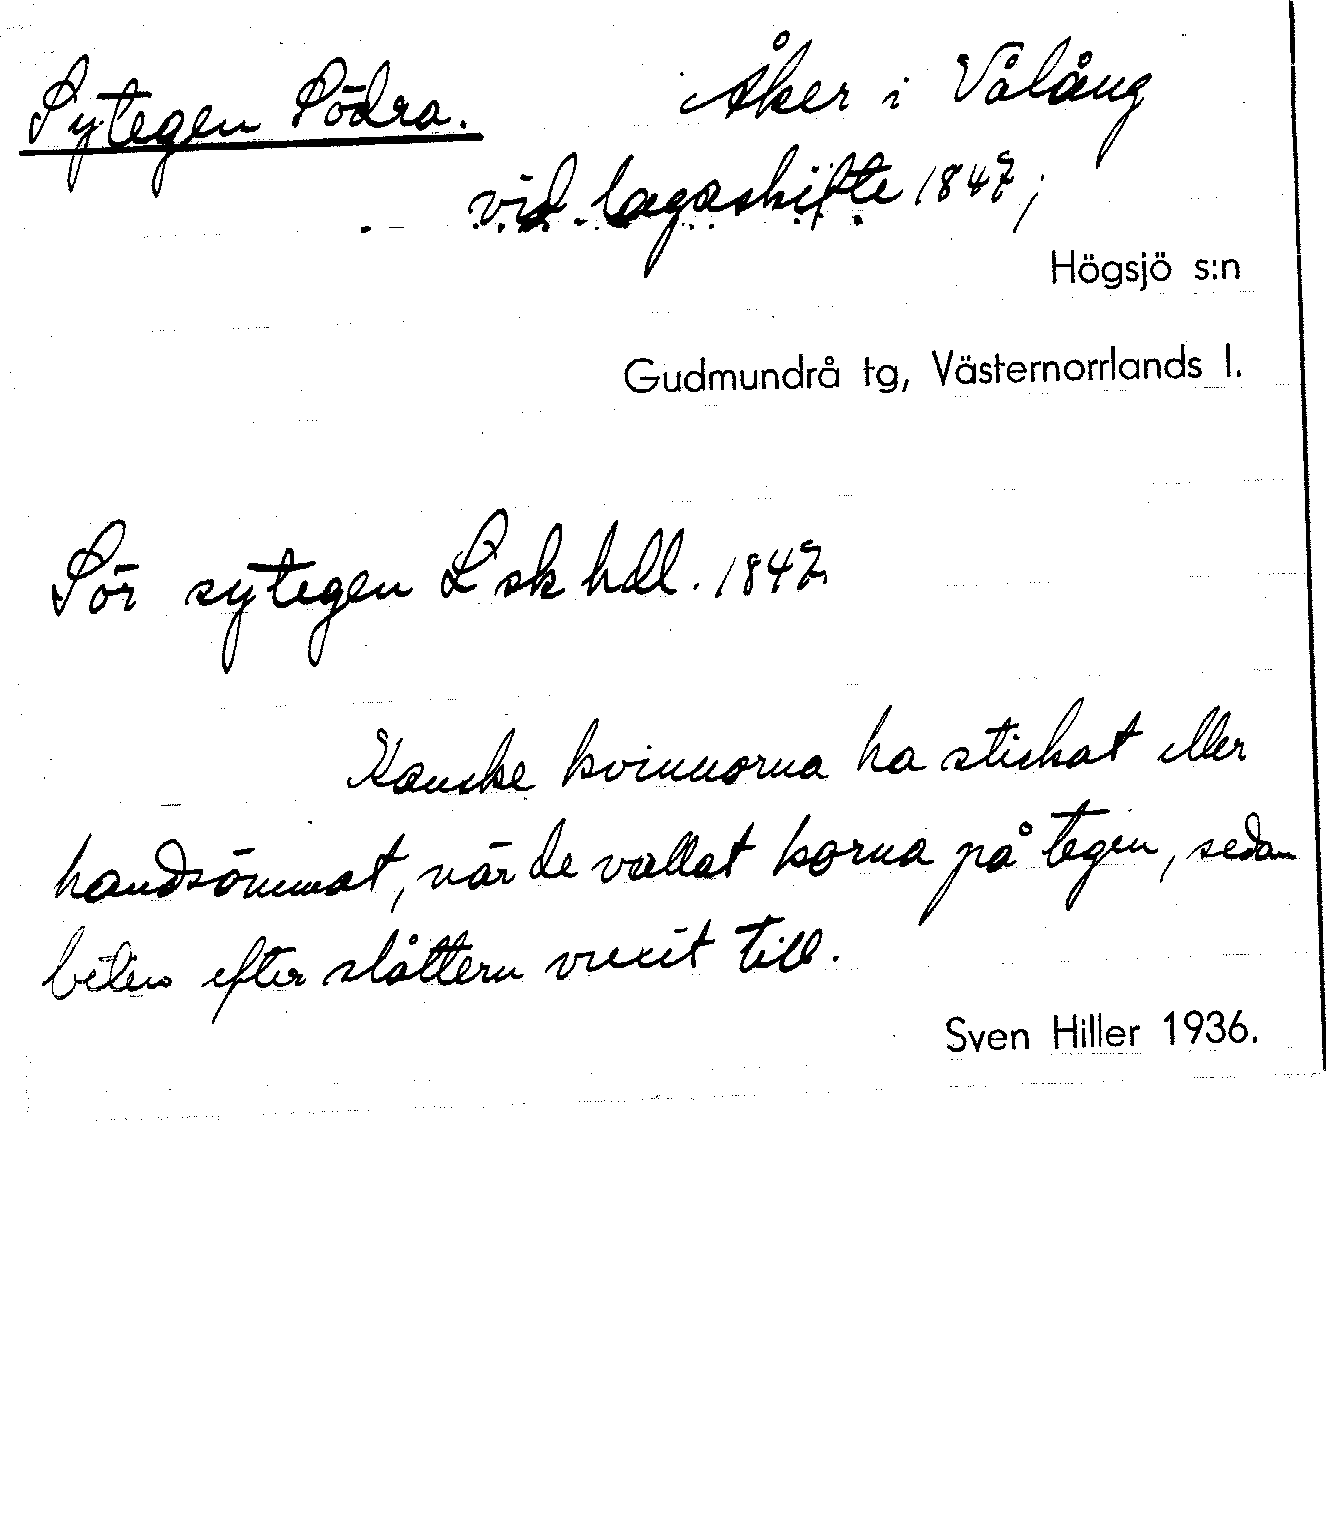 Sytegen Södra. Åker i Vålång
vid lagaskifte 1847;
Högsjö s:n
Gudmundrå tg, Västernorrlands l.
Sör sytegen L sk hdl. 1847
Kanske kvinnorna ha stickat eller
handsömmat, när de vallat korna på tegen, sedan
beten efter slåttern vuxit till.
Sven Hiller 1936.